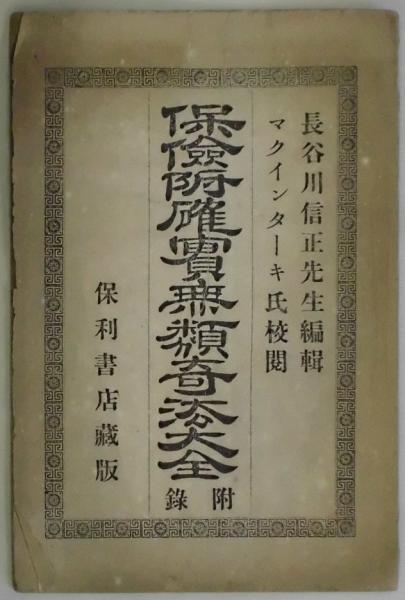 長谷川信正先生編輯
マクインターキ氏校閲
保險附確實無類奇法大全
附錄
保利書店藏版